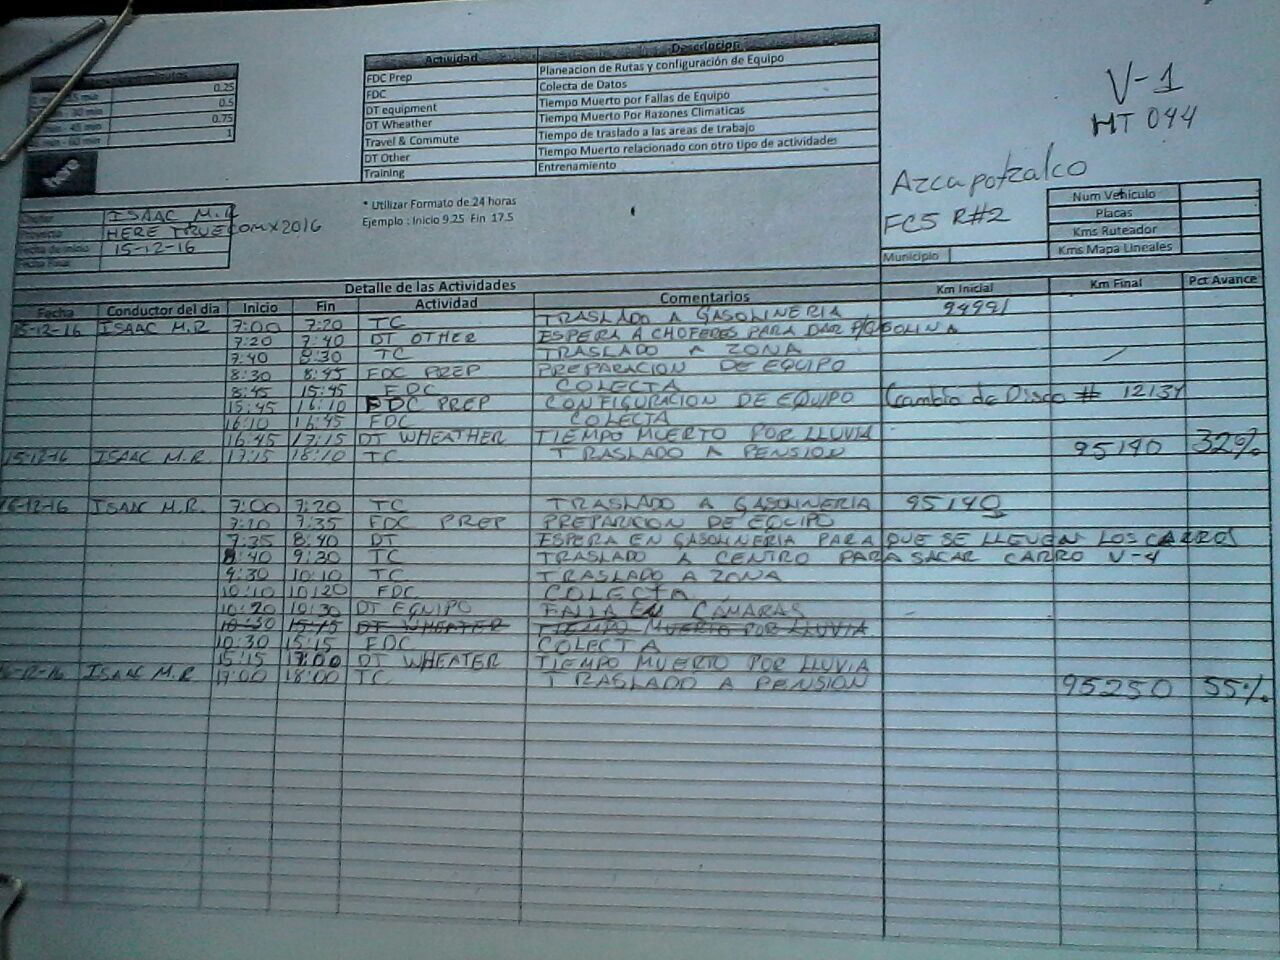 Actividad Descripcion
FDC Prep Planeacion de Rutas y configuración de Equipo
FDC Colecta de Datos
DT equipment Tiempo Muerto por Fallas de Equipo
DT Wheather Tiempo Muerto Por Razones Climaticas
Travel & Commute Tiempo de traslado a las areas de trabajo
DT Other Tiempo Muerto relacionado con otro tipo de actividades
Training Entrenamiento
minutos
0.25
0.5
0.75
1
here
V-1
MT 044
Azcapotzalco
FC5 R#2
Num Vehiculo
Placas
Kms Ruteador
Kms Mapa Lineales
Municipio
* Utilizar Formato de 24 horas
Ejemplo : Inicio 9.25 Fin 17.5
ISAAC M.R
HERE TRUECOMX2016
Fecha de inicio 15-12-16
Fecha Final
Detalle de las Actividades
Fecha Conductor del dia Inicio Fin Actividad Comentarios Km Inicial Km Final Pct Avance
15-12-16 ISAAC M.R 7:00 7:20 TC TRASLADO A GASOLINERIA 94991
7:20 7:40 DT OTHER ESPERA A CHOFERES PARA DAR P/GASOLINA
7:40 8:30 TC TRASLADO A ZONA
8:30 8:45 FDC PREP PREPARACION DE EQUIPO
8:45 15:45 FDC COLECTA
15:45 16:10 FDC PREP CONFIGURACION DE EQUIPO Cambio de Disco # 12134
16:10 16:45 FDC COLECTA
16:45 17:15 DT WHEATHER TIEMPO MUERTO POR LLUVIA
15-12-16 ISAAC M.R 17:15 18:10 TC TRASLADO A PENSION 95140 32%
16-12-16 ISAAC M.R. 7:00 7:20 TC TRASLADO A GASOLINERIA 95140
7:20 7:35 FDC PREP PREPARICION DE EQUIPO
7:35 8:40 DT ESPERA EN GASOLINERIA PARA QUE SE LLEVEN LOS CARROS
8:40 9:30 TC TRASLADO A CENTRO PARA SACAR CARRO V-4
9:30 10:10 TC TRASLADO A ZONA
10:10 10:20 FDC COLECTA
10:20 10:30 DT EQUIPO FALLA EN CAMARAS
10:30 15:15 DT WHEATER TIEMPO MUERTO POR LLUVIA
10:30 15:15 FDC COLECTA
15:15 17:00 DT WHEATER TIEMPO MUERTO POR LLUVIA
16-12-16 ISAAC M.R 17:00 18:00 TC TRASLADO A PENSION 95250 55%